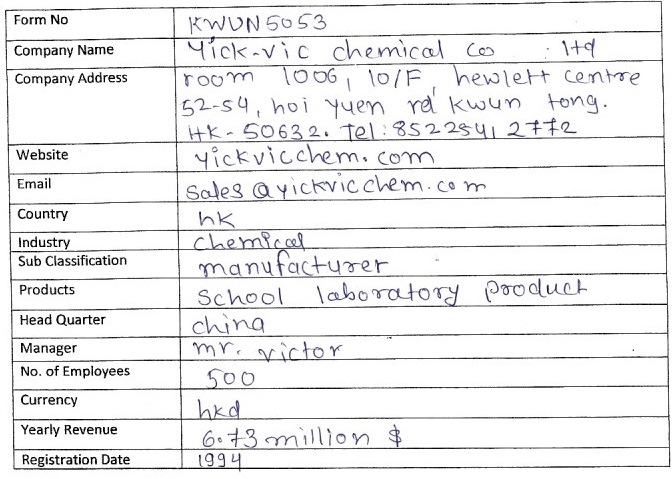 Form No KWUN5053
Company Name Yick-vic chemical co . ltd
Company Address room 1006, 10/F, hewlett centre
52-54, hoi yuen rd kwun tong.
HK- 50632. Tel: 8522541 2772
Website yickvicchem.com
Email sales@yickvicchem.com
Country hk
Industry chemical
Sub Classification manufacturer
Products School laboratory product
Head Quarter china
Manager mr. victor
No. of Employees 500
Currency hkd
Yearly Revenue 6.73 million $
Registration Date 1994